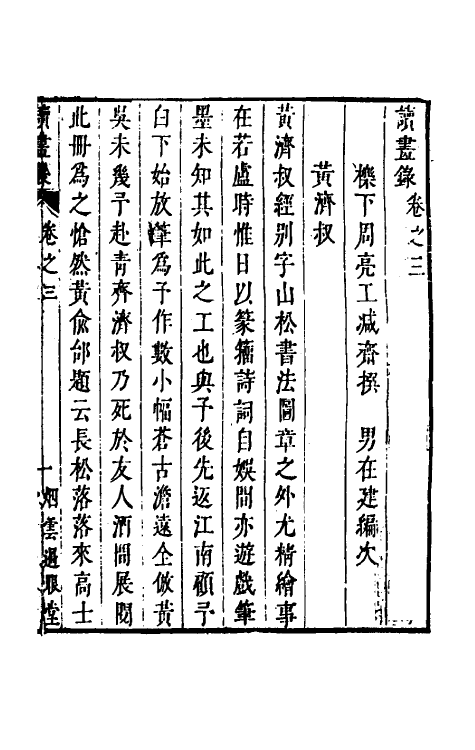 讀畫錄卷之三
櫟下周亮工減齋撰　男在建編次
黃濟叔
黃濟叔經別字山松書法圖章之外尤精繪事
在若盧時惟日以篆籀詩詞自娛間亦遊戲筆
墨未知其如此之工也與予後先返江南顧予
白下始放筆為予作數小幅蒼古澹遠全倣黃
吳未幾予赴青齊濟叔乃死於友人酒間展閱
此冊為之愴然黃俞邰題云長松落落來高士
讀畫錄　卷之三　一　烟雲過眼堂